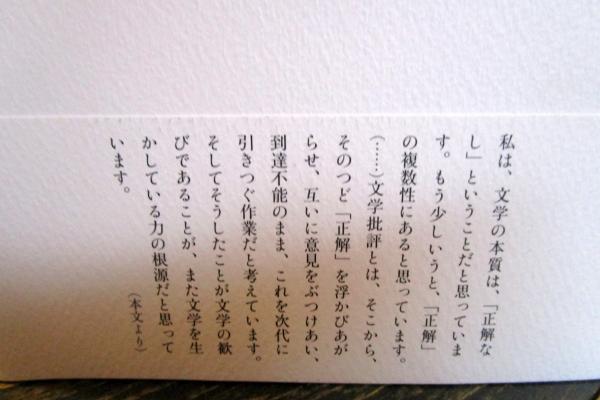 私は、文学の本質は、「正解な
し」ということだと思っていま
す。もう少しいうと、「正解」
の複数性にあると思っています。
(……)文学批評とは、そこから、
そのつど「正解」を浮かびあが
らせ、互いに意見をぶつけあい、
到達不能のまま、これを次代に
引きつぐ作業だと考えています。
そしてそうしたことが文学の歓
びであることが、また文学を生
かしている力の根源だと思って
います。
(本文より)